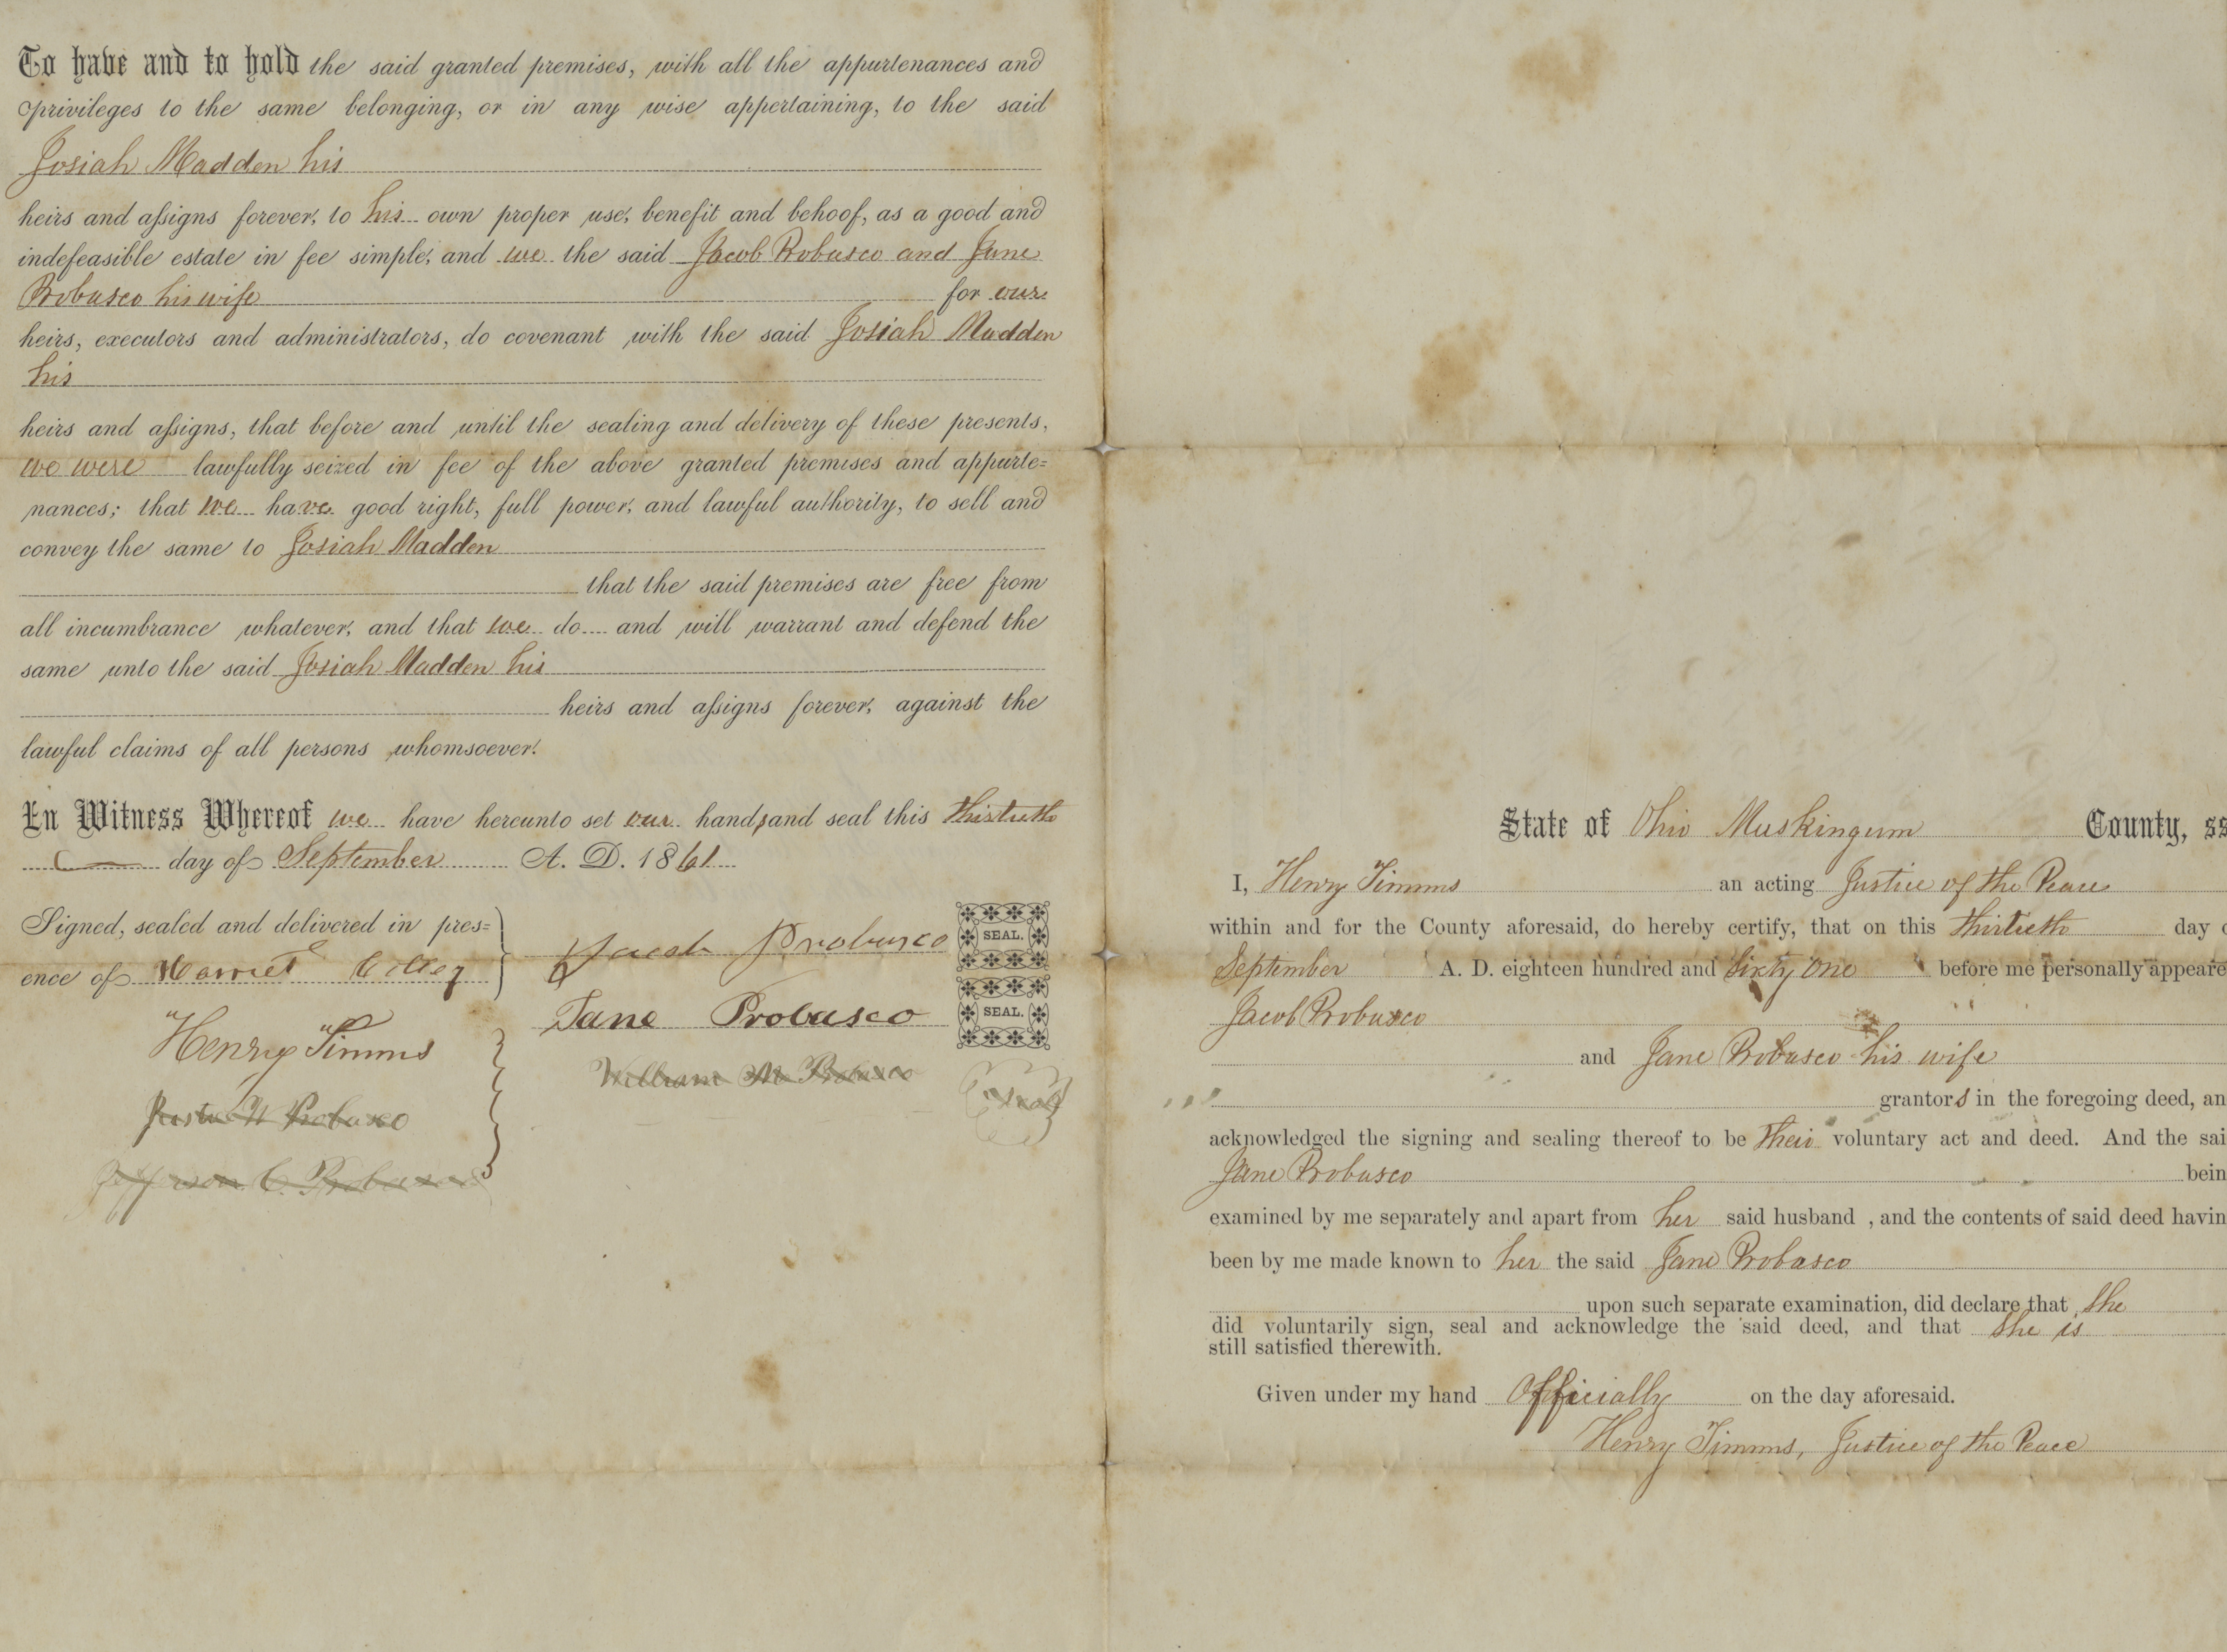 To have and to hold the said granted premises, with all the appurtenances and
privileges to the same belonging, or in any wise appertaining, to the said
Josiah Madden his
heirs and assigns forever, to his own proper use, benefit and behoof, as a good and
indefeasible estate in fee simple, and we the said Jacob Probasco and Jane
Probasco his wife for our
heirs, executors and administrators, do covenant with the said Josiah Madden
his
heirs and assigns, that before and until the sealing and delivery of these presents,
we were lawfully seized in fee of the above granted premises and appurte=
nances; that we have good right, full power, and lawful authority, to sell and
convey the same to Josiah Madden
that the said premises are free from
all incumbrance whatever, and that we do and will warrant and defend the
same unto the said Josiah Madden his
heirs and assigns forever, against the
lawful claims of all persons whomsoever.
In Witness Whereof we have hereunto set our hands and seal this thirtieth
day of September A. D. 1861
Signed, sealed and delivered in pres=
ence of Harriet
Henry Timms
Probasco
Jefferson C. Probasco
Jacob Probasco SEAL.
Jane Probasco SEAL.
William M Probasco Seal
State of Ohio Muskingum County, ss
I, Henry Timms an acting Justice of the Peace
within and for the County aforesaid, do hereby certify, that on this thirtieth day o
September A. D. eighteen hundred and Sixty One before me personally appeare
Jacob Probasco
and Jane Probasco his wife
grantors in the foregoing deed, an
acknowledged the signing and sealing thereof to be their voluntary act and deed. And the sai
Jane Probasco bein
examined by me separately and apart from her said husband , and the contents of said deed havin
been by me made known to her the said Jane Probasco
upon such separate examination, did declare that She
did voluntarily sign, seal and acknowledge the said deed, and that She is
still satisfied therewith.
Given under my hand Officially on the day aforesaid.
Henry Timms, Justice of the Peace